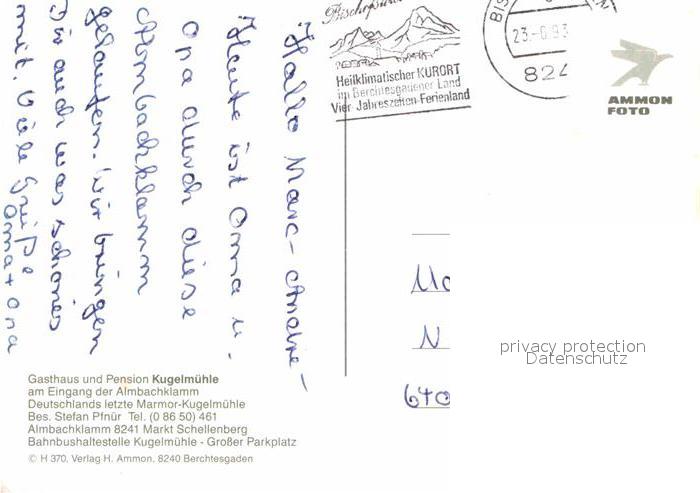 Hallo Marc-Andre-
Heute ist Oma u.
Opa durch diese
Almbachklamm
gelaufen. Wir bringen
Dir auch was schönes
mit. Viele Grüße
Oma + Opa
Heilklimatischer KURORT
im Berchtesgadener Land
Vier-Jahreszeiten-Ferienland
BIS
23.-6.93
824
AMMON
FOTO
Mo
N
640
privacy protection
Datenschutz
Gasthaus und Pension Kugelmühle
am Eingang der Almbachklamm
Deutschlands letzte Marmor-Kugelmühle
Bes. Stefan Pfnür Tel. (0 86 50) 461
Almbachklamm 8241 Markt Schellenberg
Bahnbushaltestelle Kugelmühle - Großer Parkplatz
© H 370. Verlag H. Ammon. 8240 Berchtesgaden